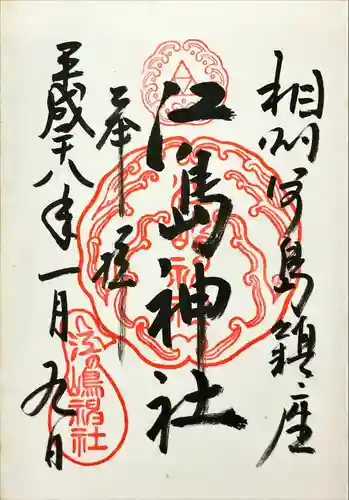 相州江島鎮座
江島神社
奉拝
平成十八年一月九日
江嶋神社